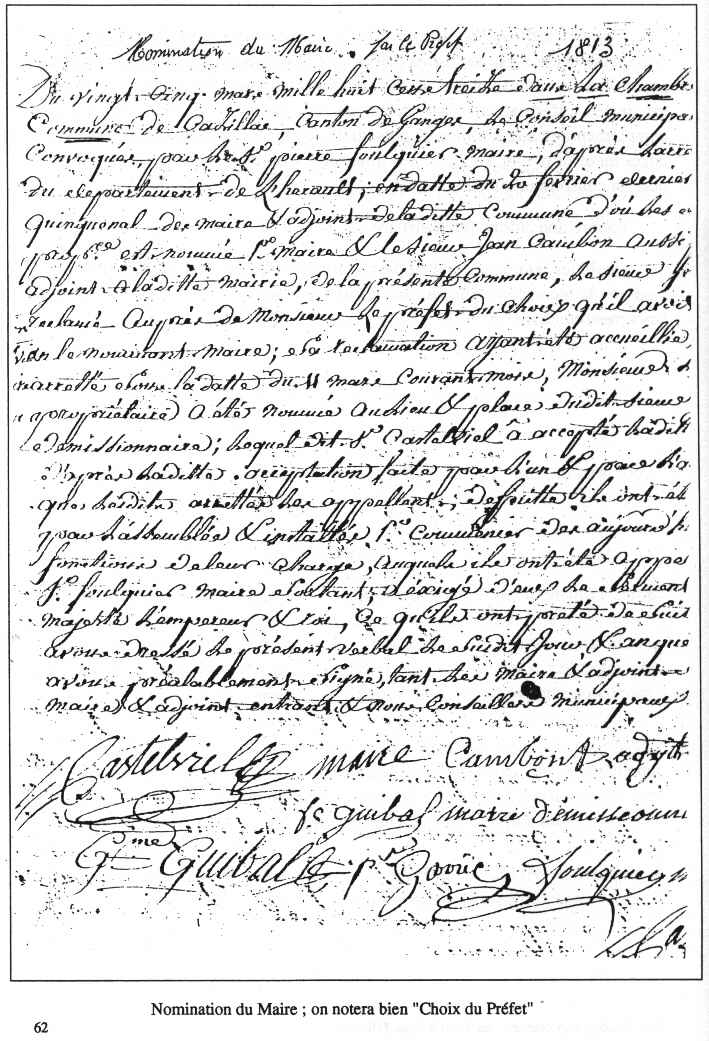 Nomination du Maire par le Préfet 1813
Du vingt cinq mars mille huit cents treize dans la Chambre
Commune de Cazillac, Canton de Ganges, Le Conseil municipa
Convoqués, par le Sr. pierre foulquier maire, d'après
du departement de L'herault, en datte du 20 fevrier dernier
quinquenal des maire & adjoint de la ditte Commune d'où
est nommé pr. Maire & le sieur Jean Cambon aussi
adjoint à la ditte mairie, de la présente Commune, Le sieur
reclamé auprès de Monsieur Le préfet du choix qu'il avoit
en le nommant maire; et la reclamation ayant été accueillie,
arretté sous la datte du 11 mars Courant mois, Monsieur
propriétaire A été nommé au lieu & place dudit sieur
demissionnaire; Lequel dit Sr. Castelviel à accepté laditte
d'après laditte acceptation faite par l'un & par l'a
que lesdits arrettés les appellent; de suitte ils ont ét
par l'assemblée & installés pr. Commencer dès aujourd'h
fonctions de leur Charge, auquels ils ont été appe
Sr. foulquier maire à exigé d'eux Le serment
majesté L'empereur & roi, Ce qu'ils ont preté de suit
avons dressé Le présent verbal Le susdit Jour & an que
avons préalablement signé, tant Les maire & adjoint
maire & adjoint entrant & nous Conseillers municipaux
Castelviel maire Cambon adjt
fc Guibal maire démissionn
Gme Guibal pre Foulquier
Nomination du Maire ; on notera bien "Choix du Préfet"
62